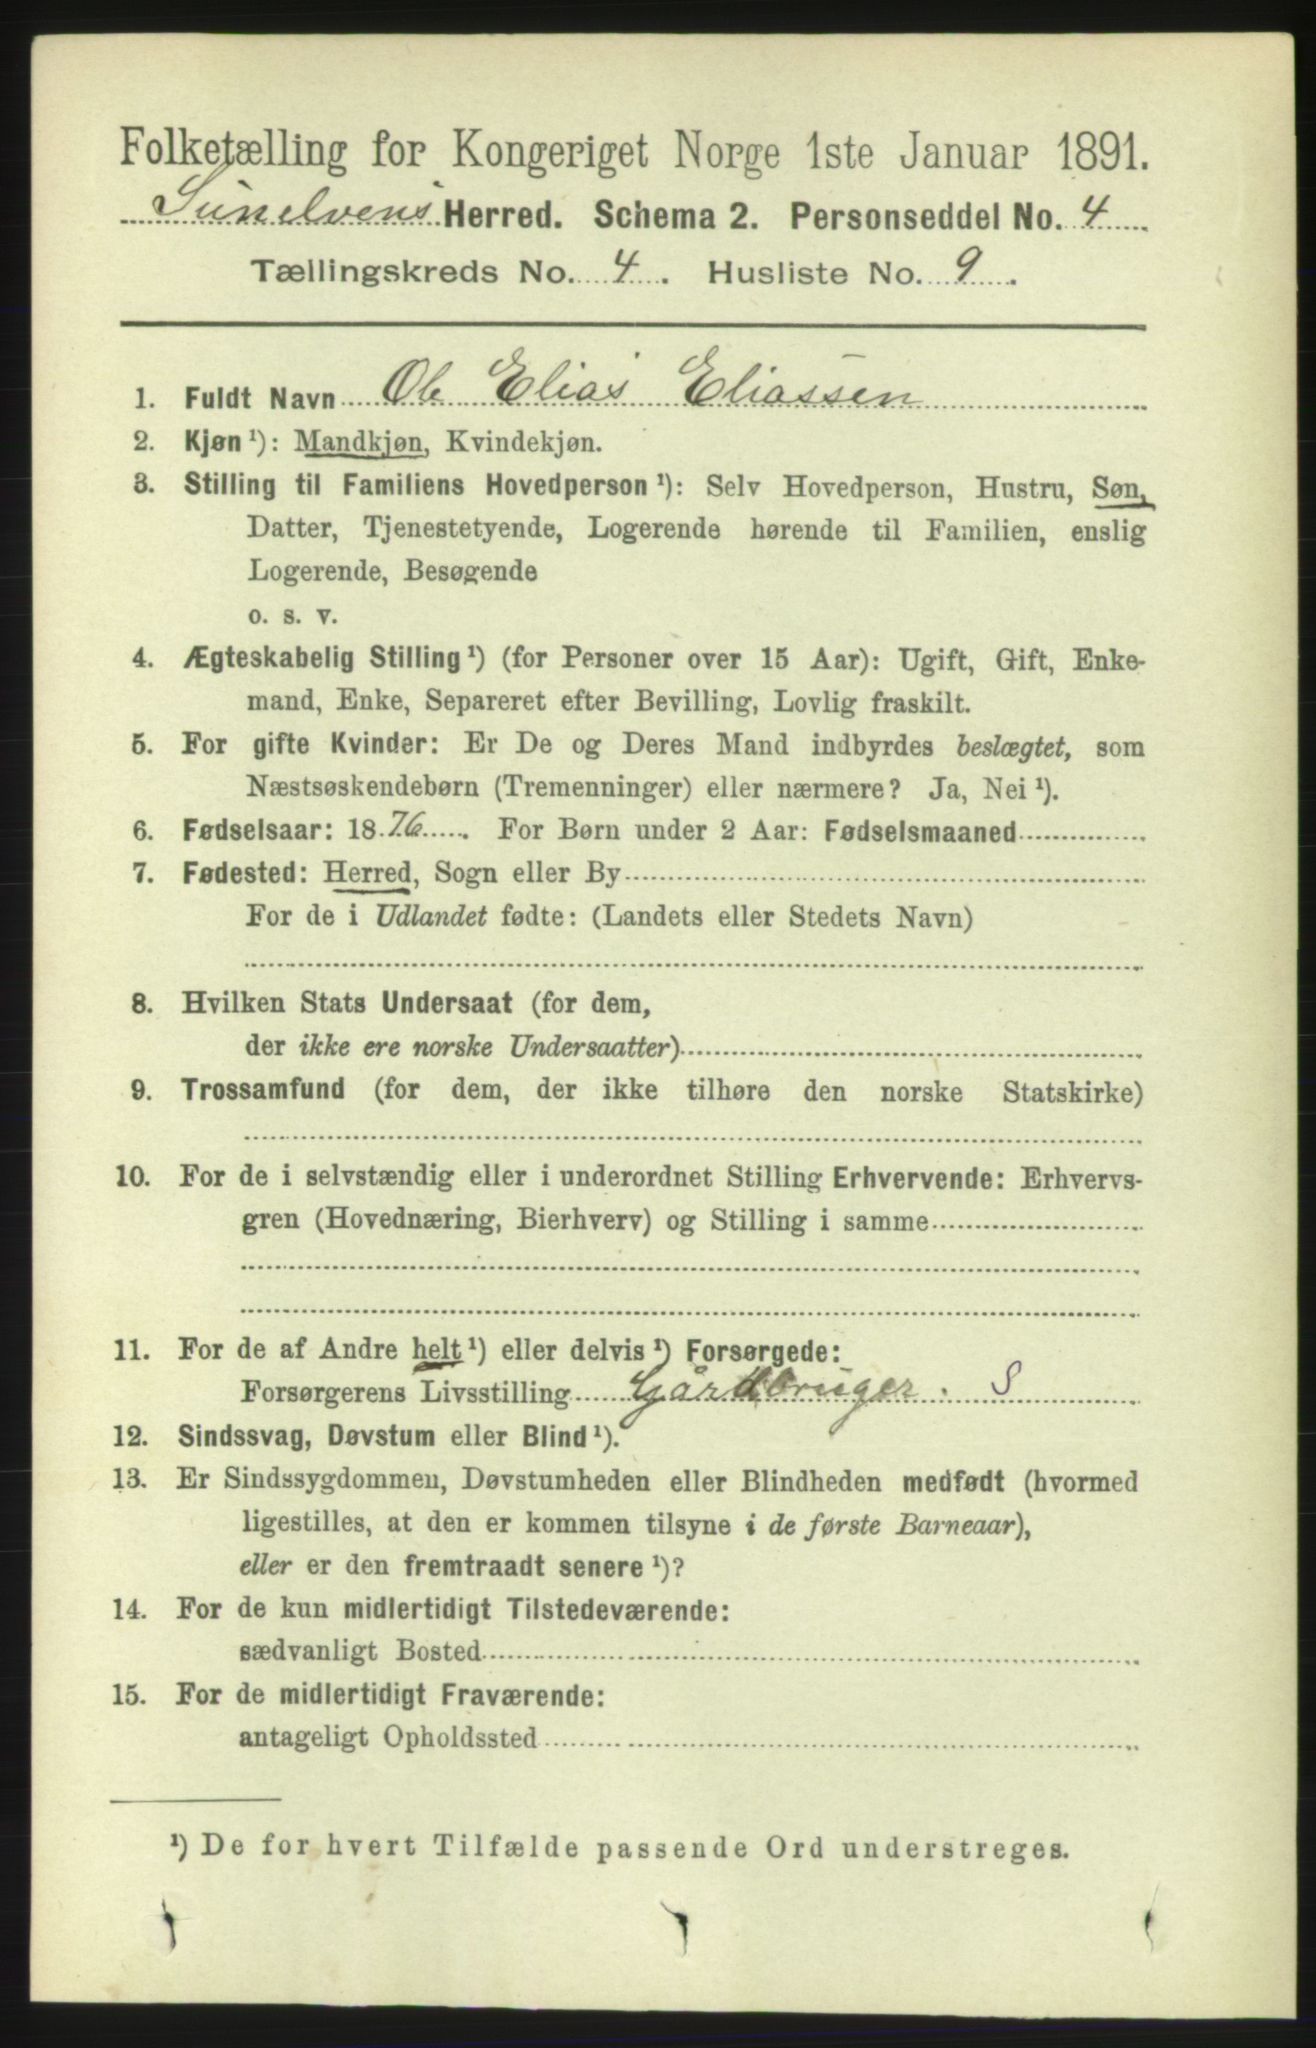 Folketælling for Kongeriget Norge 1ste Januar 1891.
Sunelvens Herred. Schema 2. Personseddel No. 4
Tællingskreds No. 4. Husliste No. 9.
1. Fuldt Navn Ole Elias Eliassen
2. Kjøn ¹): Mandkjøn, Kvindekjøn.
3. Stilling til Familiens Hovedperson ¹): Selv Hovedperson, Hustru, Søn,
Datter, Tjenestetyende, Logerende hørende til Familien, enslig
Logerende, Besøgende
o. s. v.
4. Ægteskabelig Stilling ¹) (for Personer over 15 Aar): Ugift, Gift, Enke-
mand, Enke, Separeret efter Bevilling, Lovlig fraskilt.
5. For gifte Kvinder: Er De og Deres Mand indbyrdes beslægtet, som
Næstsøskendebørn (Tremenninger) eller nærmere? Ja, Nei ¹).
6. Fødselsaar: 1876. For Børn under 2 Aar: Fødselsmaaned
7. Fødested: Herred, Sogn eller By
For de i Udlandet fødte: (Landets eller Stedets Navn)
8. Hvilken Stats Undersaat (for dem,
der ikke ere norske Undersaatter)
9. Trossamfund (for dem, der ikke tilhøre den norske Statskirke)
10. For de i selvstændig eller i underordnet Stilling Erhvervende: Erhvervs-
gren (Hovednæring, Bierhverv) og Stilling i samme
11. For de af Andre helt ¹) eller delvis ¹) Forsørgede:
Forsørgerens Livsstilling Gårdbruger. S
12. Sindssvag, Døvstum eller Blind ¹).
13. Er Sindssygdommen, Døvstumheden eller Blindheden medfødt (hvormed
ligestilles, at den er kommen tilsyne i de første Barneaar),
eller er den fremtraadt senere ¹)?
14. For de kun midlertidigt Tilstedeværende:
sædvanligt Bosted
15. For de midlertidigt Fraværende:
antageligt Opholdssted
¹) De for hvert Tilfælde passende Ord understreges.